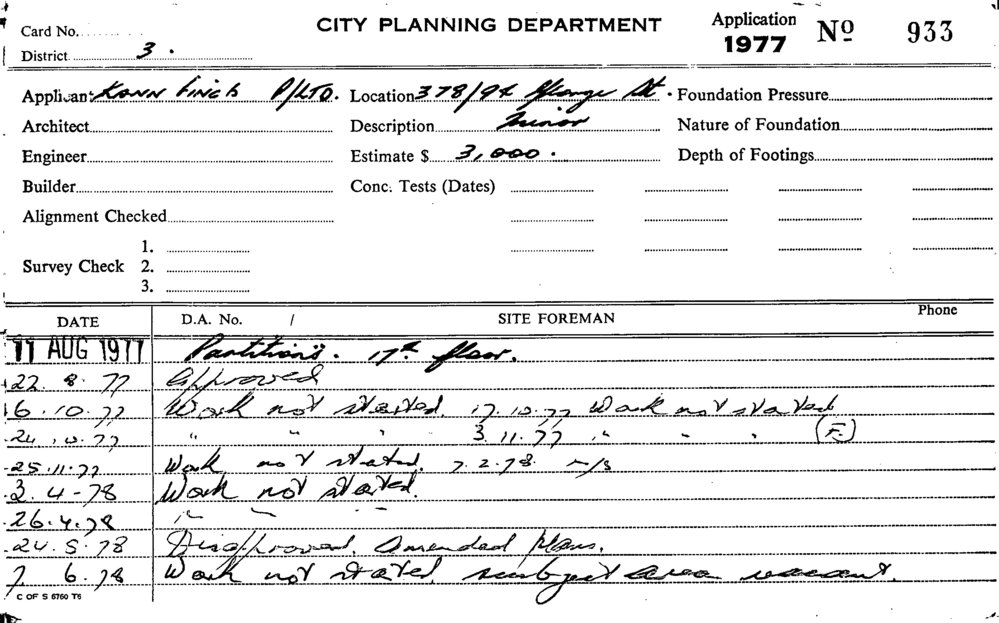 Card No.
CITY PLANNING DEPARTMENT
Application 1977 No 933
District 3.
Applicant Kann Finch P/LTD. Location 378/94 George St. Foundation Pressure
Architect Description Minor Nature of Foundation
Engineer Estimate $ 3,000. Depth of Footings
Builder Conc. Tests (Dates)
Alignment Checked
1.
Survey Check 2.
3.
DATE D.A. No. / SITE FOREMAN Phone
11 AUG 1977 Partitions. 17th floor.
22. 8. 77 Approved
6. 10. 77 Work not started. 17.10.77 Work not started
24.10.77 " " " 3.11.77 " " " (F.)
25.11.77 Work not started. 7.2.78. n/s
3. 4-78 Work not started.
26.4.78 " " "
24.5.78 Disapproved. Amended plans.
7 6.78 Work not started. subject area vacant.
C OF S 6760 T6